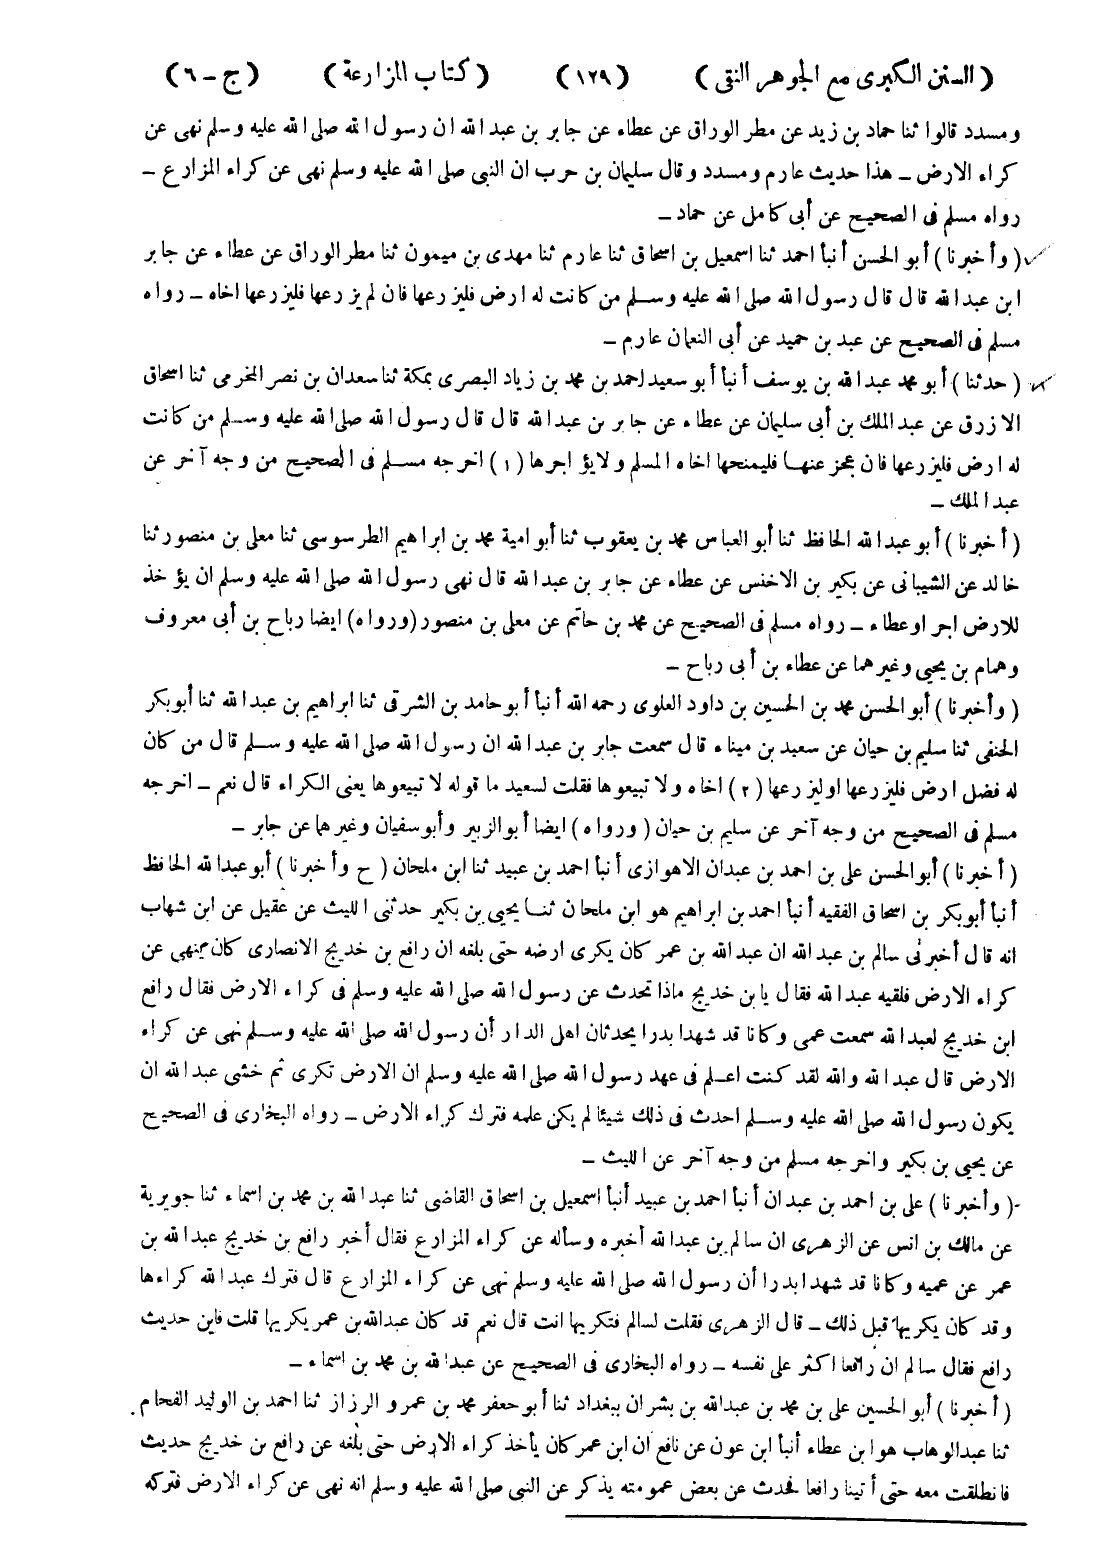 ( السنن الكبرى مع الجوهر النقى ) ( ١٢٩ ) ( كتاب المزارعة ) ( ج - ٦ )
ومسدد قالوا ثنا حماد بن زيد عن مطر الوراق عن عطاء عن جابر بن عبد الله ان رسول الله صلى الله عليه وسلم نهى عن
كراء الارض - هذا حديث عارم ومسدد وقال سليمان بن حرب ان النبى صلى الله عليه وسلم نهى عن كراء المزارع -
رواه مسلم فى الصحيح عن أبى كامل عن حماد -
( وأخبرنا ) أبو الحسن أنبأ احمد ثنا اسمعيل بن اسحاق ثنا عارم ثنا مهدى بن ميمون ثنا مطر الوراق عن عطاء عن جابر
ابن عبد الله قال قال رسول الله صلى الله عليه وسلم من كانت له ارض فليزرعها فان لم يزرعها فليزرعها اخاه - رواه
مسلم فى الصحيح عن عبد بن حميد عن أبى النعمان عارم -
( حدثنا ) أبو محمد عبد الله بن يوسف أنبأ أبو سعيد احمد بن محمد بن زياد البصرى بمكة ثنا سعدان بن نصر المخرمى ثنا اسحاق
الازرق عن عبد الملك بن أبى سليمان عن عطاء عن جابر بن عبد الله قال قال رسول الله صلى الله عليه وسلم من كانت
له ارض فليزرعها فان عجز عنها فليمنحها اخاه المسلم ولا يؤاجرها ( ١ ) اخرجه مسلم فى الصحيح من وجه آخر عن
عبد الملك -
( أخبرنا ) أبو عبد الله الحافظ ثنا أبو العباس محمد بن يعقوب ثنا أبو امية محمد بن ابراهيم الطرسوسى ثنا معلى بن منصور ثنا
خالد عن الشيبانى عن بكير بن الاخنس عن عطاء عن جابر بن عبد الله قال نهى رسول الله صلى الله عليه وسلم ان يؤخذ
للارض اجر او عطاء - رواه مسلم فى الصحيح عن محمد بن حاتم عن معلى بن منصور ( ورواه ) ايضا رباح بن أبى معروف
وهمام بن يحيى وغيرهما عن عطاء بن أبى رباح -
( وأخبرنا ) أبو الحسن محمد بن الحسين بن داود العلوى رحمه الله أنبأ أبو حامد بن الشرقى ثنا ابراهيم بن عبد الله ثنا أبو بكر
الحنفى ثنا سليم بن حيان عن سعيد بن ميناء قال سمعت جابر بن عبد الله ان رسول الله صلى الله عليه وسلم قال من كان
له فضل ارض فليزرعها او ليزرعها ( ٢ ) اخاه ولا تبيعوها فقلت لسعيد ما قوله لا تبيعوها يعنى الكراء قال نعم - اخرجه
مسلم فى الصحيح من وجه آخر عن سليم بن حيان ( ورواه ) ايضا أبو الزبير وأبو سفيان وغيرهما عن جابر -
( أخبرنا ) أبو الحسن على بن احمد بن عبدان الاهوازى أنبأ احمد بن عبيد ثنا ابن ملحان ( ح وأخبرنا ) أبو عبد الله الحافظ
أنبأ أبو بكر بن اسحاق الفقيه أنبأ احمد بن ابراهيم هو ابن ملحان ثنا يحيى بن بكير حدثنى الليث عن عقيل عن ابن شهاب
انه قال أخبرنى سالم بن عبد الله ان عبد الله بن عمر كان يكرى ارضه حتى بلغه ان رافع بن خديج الانصارى كان ينهى عن
كراء الارض فلقيه عبد الله فقال يا بن خديج ماذا تحدث عن رسول الله صلى الله عليه وسلم فى كراء الارض فقال رافع
ابن خديج لعبد الله سمعت عمى وكانا قد شهدا بدرا يحدثان اهل الدار أن رسول الله صلى الله عليه وسلم نهى عن كراء
الارض قال عبد الله والله لقد كنت اعلم فى عهد رسول الله صلى الله عليه وسلم ان الارض تكرى ثم خشى عبد الله ان
يكون رسول الله صلى الله عليه وسلم احدث فى ذلك شيئا لم يكن علمه فترك كراء الارض - رواه البخارى فى الصحيح
عن يحيى بن بكير واخرجه مسلم من وجه آخر عن الليث -
( وأخبرنا ) على بن احمد بن عبدان أنبأ احمد بن عبيد أنبأ اسمعيل بن اسحاق القاضى ثنا عبد الله بن محمد بن اسماء ثنا جويرية
عن مالك بن انس عن الزهرى ان سالم بن عبد الله أخبره وسأله عن كراء المزارع فقال أخبر رافع بن خديج عبد الله بن
عمر عن عميه وكانا قد شهدا بدرا أن رسول الله صلى الله عليه وسلم نهى عن كراء المزارع قال فترك عبد الله كراءها
وقد كان يكريها قبل ذلك - قال الزهرى فقلت لسالم فتكريها انت قال نعم قد كان عبد الله بن عمر يكريها قلت فاين حديث
رافع فقال سالم ان رافعا اكثر على نفسه - رواه البخارى فى الصحيح عن عبد الله بن محمد بن اسماء -
( أخبرنا ) أبو الحسين على بن محمد بن عبد الله بن بشران ببغداد ثنا أبو جعفر محمد بن عمرو الرزاز ثنا احمد بن الوليد الفحام
ثنا عبد الوهاب هو ابن عطاء أنبأ ابن عون عن نافع ان ابن عمر كان يأخذ كراء الارض حتى بلغه عن رافع بن خديج حديث
فانطلقت معه حتى أتينا رافعا فحدث عن بعض عمومته يذكر عن النبى صلى الله عليه وسلم انه نهى عن كراء الارض فتركه